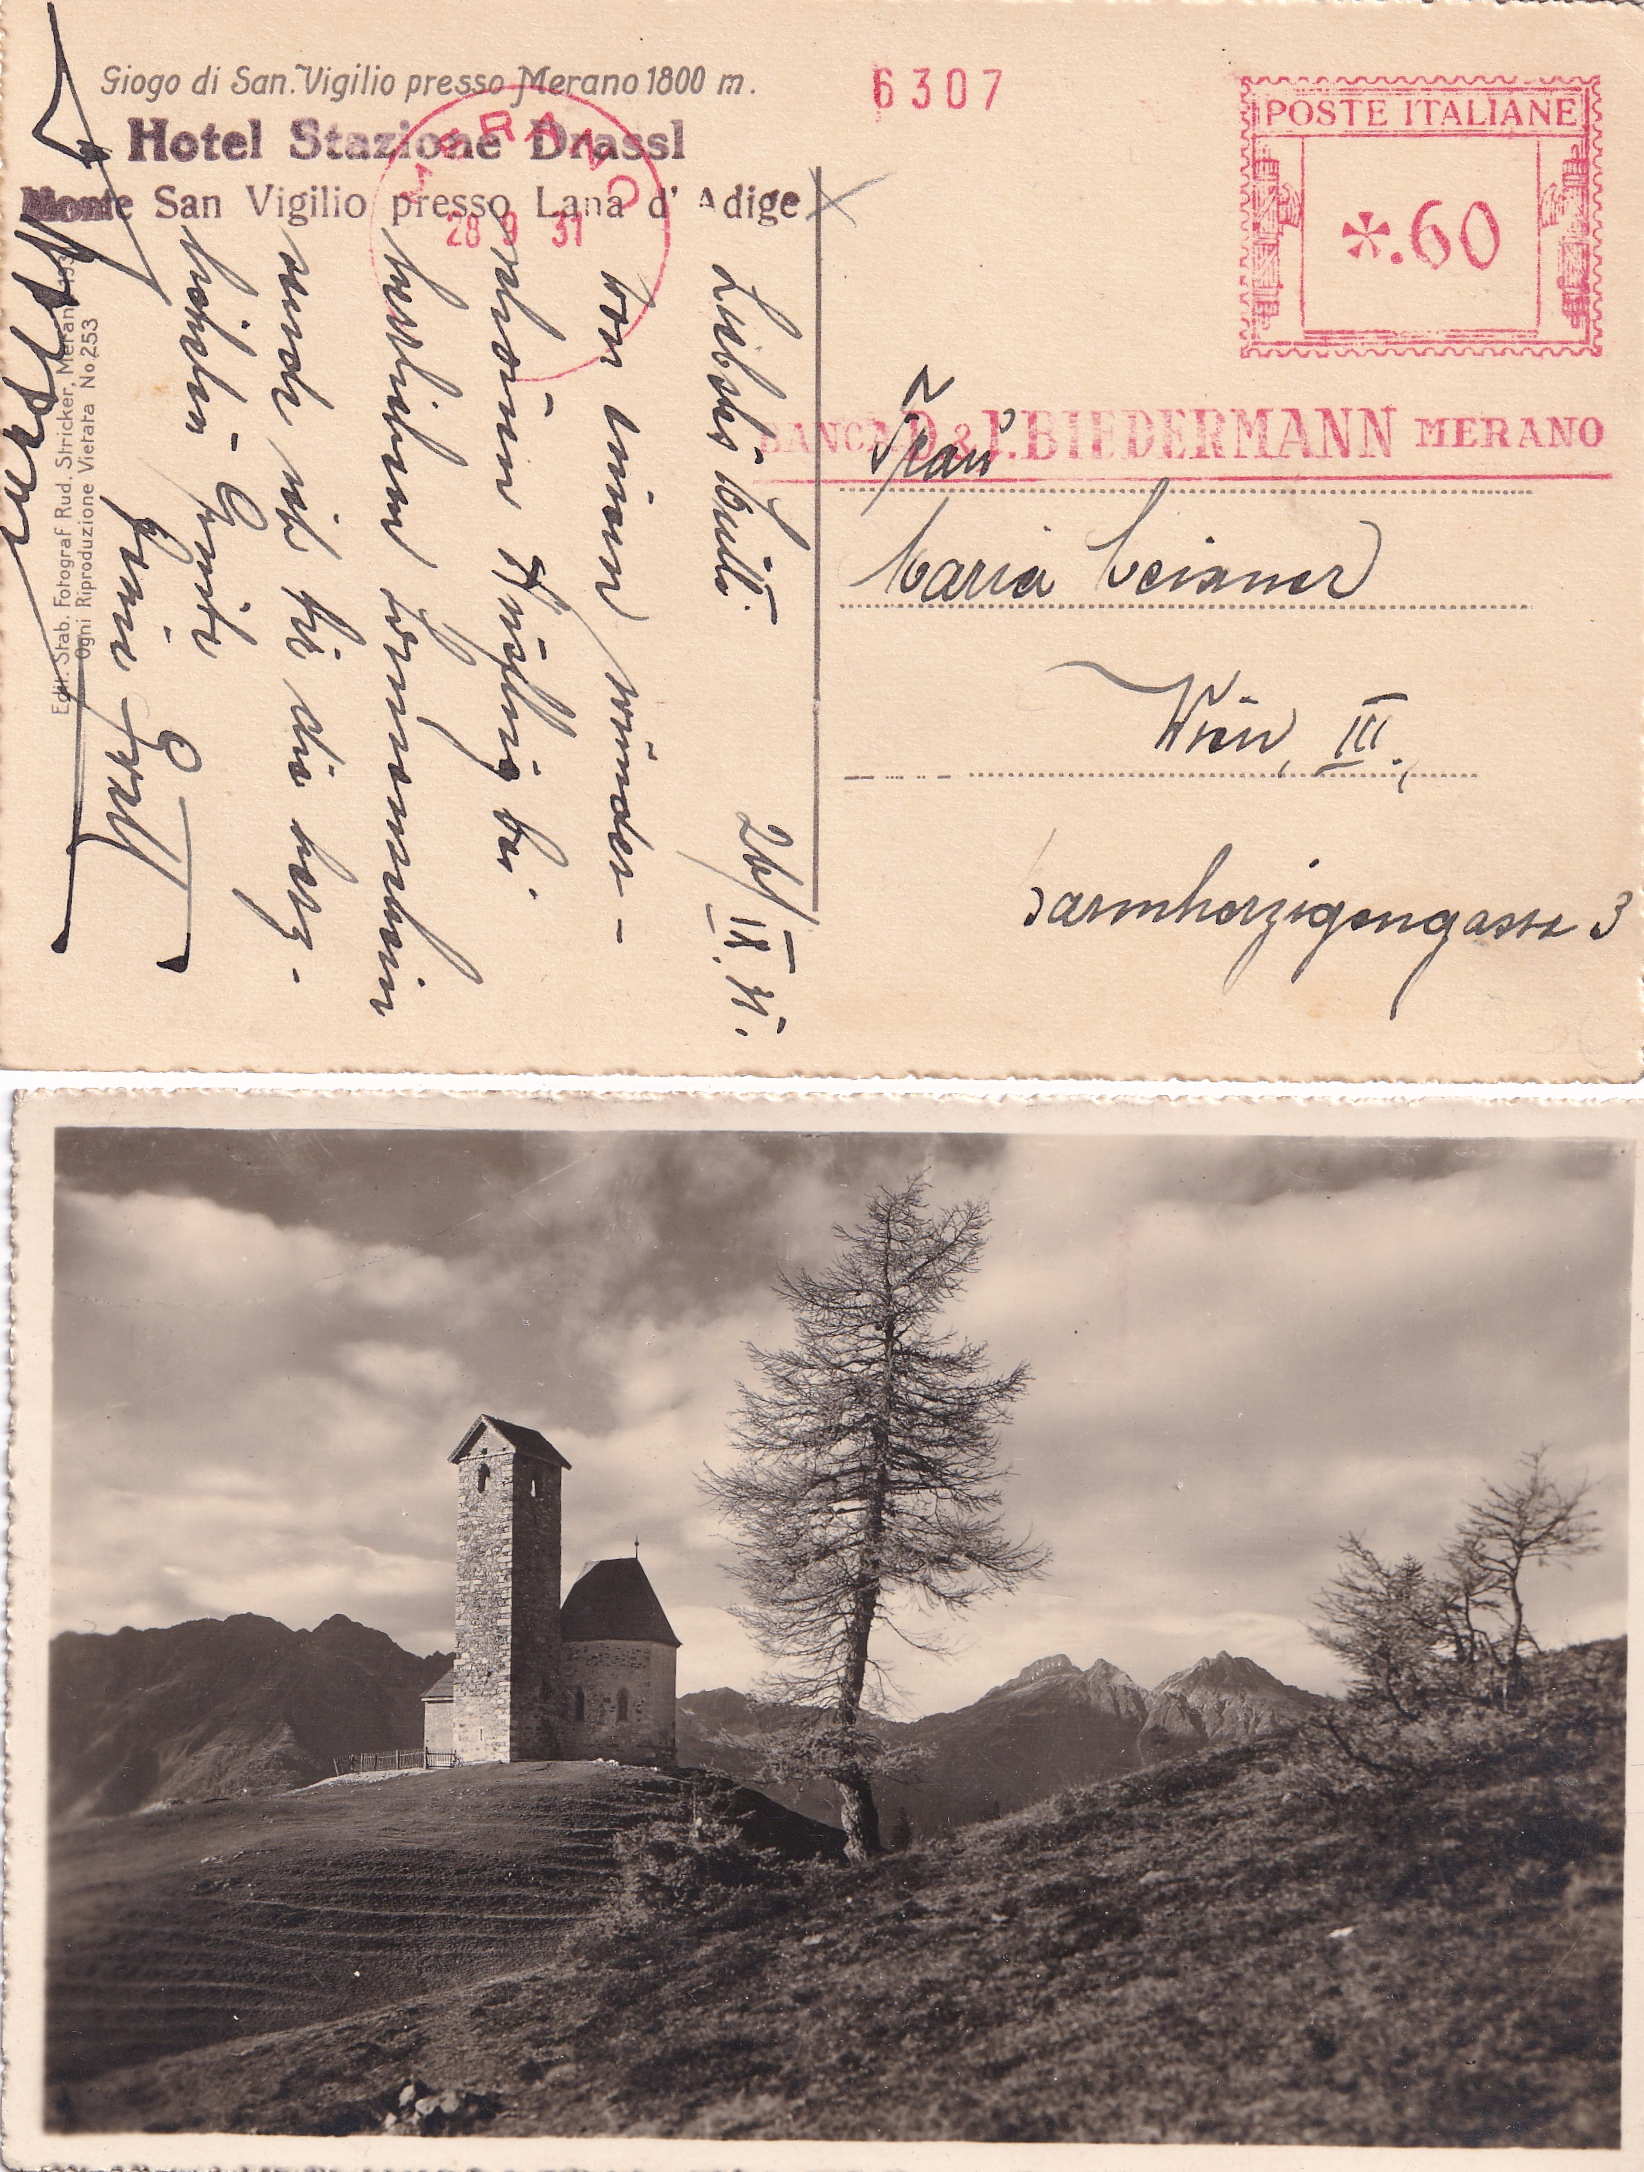 Giogo di San. Vigilio presso Merano 1800 m.
Hotel Stazione Drassl
Monte San Vigilio presso Lana d' Adige
MERANO
28 9 31
6307
POSTE ITALIANE
*.60
BANCA D & J. BIEDERMANN MERANO
Edit. Stab. Fotograf Rud. Stricker, Meran
Ogni Riproduzione Vietata No. 253
26/IX. 31.
Liebste
von einem wunder-
schönen Ausflug bei
herrlichem
sende ich Dir die herz-
lichsten Grüße
Frau
Maria
Wien, III.,
Barmherzigengasse 3